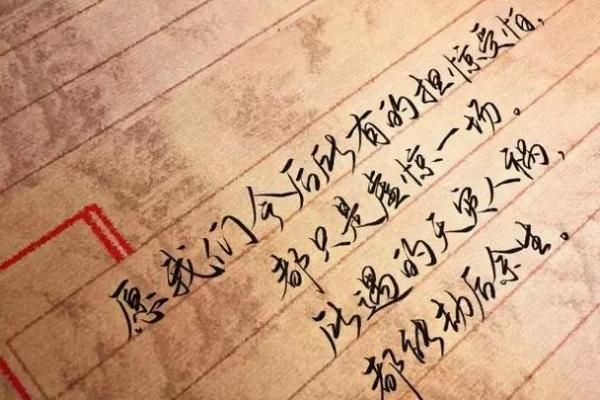 愿我们今后所有的担惊受怕,
都只是虚惊一场。
所遇的天灾人祸,
都能劫后余生。